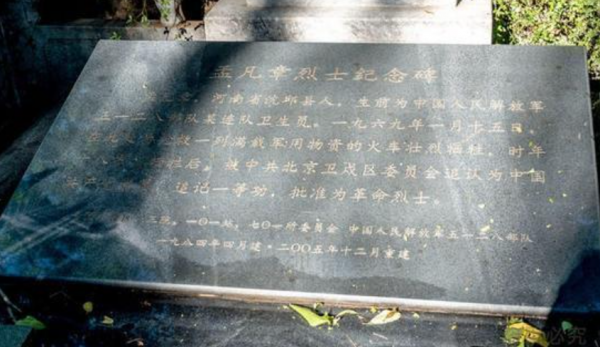 孟凡章烈士纪念碑
河南省沈邱县人，生前为中国人民解放军
五一一二八部队某连队卫生员。一九六九年一月十五日，
一列满载军用物资的火车壮烈牺牲，时年
牺牲后，被中共北京卫戍区委员会追认为中国
追记一等功，批准为革命烈士。
一〇一站，七〇一所委员会 中国人民解放军五一一二八部队
一九八四年四月建·二〇〇五年十二月重建